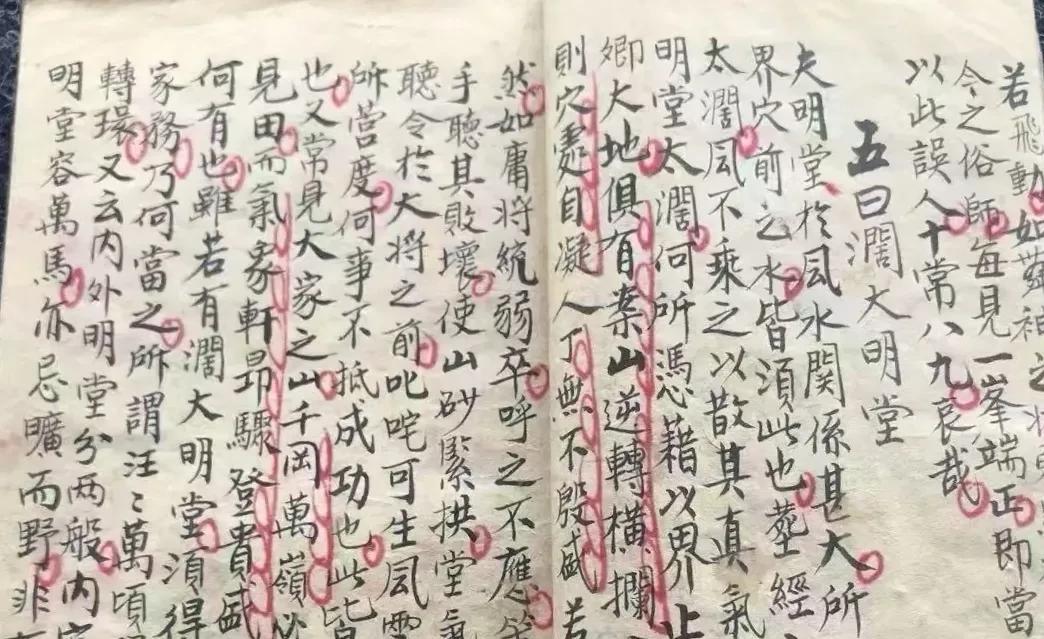 若飛動如
今之俗師每見一峯端正即當
以此誤人十常八九哀哉
五曰濶大明堂
夫明堂於風水関係甚大所
界穴前之水皆須此也塟經
太濶風不乘之以散其真氣
明堂太濶何所馮藉以界止
卿大地俱有案山逆轉橫攔
則穴處自凝人丁無不殷盛若
然如庸將統弱卒呼之不應
手聽其敗壞使山砂緊拱堂氣
聽令於大將之前叱咤可生風
所营度何事不抵成功也此皆
也又常見大家之山千岡萬嶺必
見田而氣象軒昻驟登貴盛
何有也雖若有濶大明堂須得
家務乃何當之所謂汪〻萬頃
轉環又云内外明堂分两般内
明堂容萬馬亦忌曠而野非